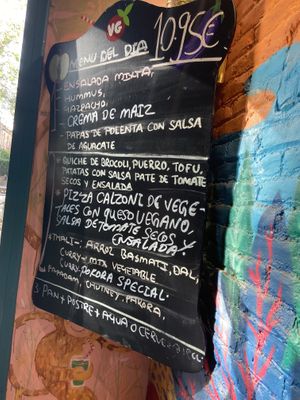 VG
MENU DEL DIA 10.95€
- ENSALADA MIXTA,
- HUMMUS,
- GAZPACHO.
- CREMA DE MAIZ
- PAPAS DE POLENTA CON SALSA
DE AGUACATE
* QUICHE DE BROCOLI, PUERRO, TOFU,
PATATAS CON SALSA PATE DE TOMATE
SECOS Y ENSALADA
* PIZZA CALZONI DE VEGE-
TALES CON QUESO VEGANO,
SALSA DE TOMATE SECOS Y
ENSALADA.
* THALI-: ARROZ BASMATI, DAL,
CURRY- MIX VEGETABLE
CURRY- PAKORA SPECIAL.
PAPADAM, CHUTNEY, PAKORA,
PAN + POSTRE + AGUA O CERVEZA